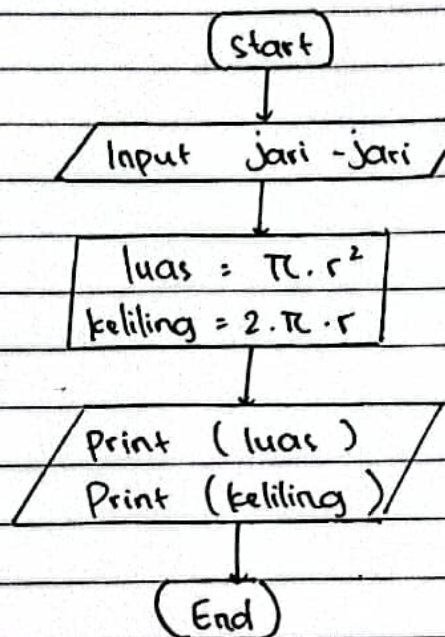 start
Input jari-jari
luas = π . r²
keliling = 2 . π . r
print (luas)
Print (keliling)
End